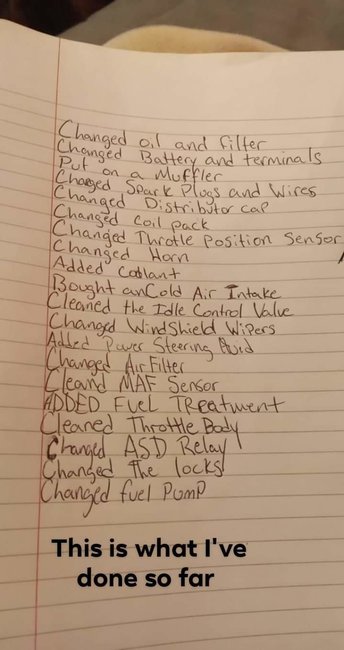 Changed oil and filter
Changed Battery and terminals
Put on a Muffler
Changed Spark Plugs and Wires
Changed Distributor cap
Changed coil pack
Changed Throtle Position Sensor
Changed Horn
Added Coolant
Bought an Cold Air Intake
Cleaned the Idle Control Valve
Changed WindShield Wipers
Added Power Steering fluid
Changed Air Filter
Cleand MAF Sensor
ADDED Fuel Treatment
Cleaned Throttle Body
Changed ASD Relay
Changed The locks
Changed fuel Pump
This is what I've
done so far